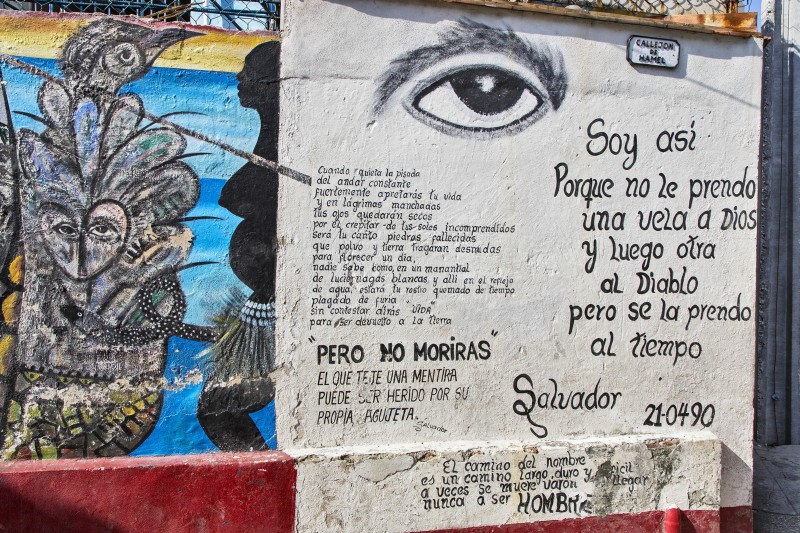 CALLEJON
DE
HAMEL
Soy así
Porque no le prendo
una vela a Dios
y luego otra
al Diablo
pero se la prendo
al tiempo
Salvador 21-0490
Cuando quieta la pisada
del andar constante
fuertemente apretarás tu vida
y en lágrimas manchadas
tus ojos quedarán secos
por el crepitar de tus soles incomprendidos
será tu canto piedras fallecidas
que polvo y tierra tragarán desnudas
para florecer un día,
nadie sabe como, en un manantial
de luciérnagas blancas y allí en el reflejo
de agua, estará tu rostro quemado de tiempo
plagado de furia
sin contestar dirás "VIDA"
para ser devuelto a la tierra
"PERO NO MORIRAS"
EL QUE TEJE UNA MENTIRA
PUEDE SER HERIDO POR SU
PROPIA AGUJETA.
Salvador
El camino del hombre
es un camino largo, duro y
a veces se muere varon
nunca a ser HOMBRE
llegar